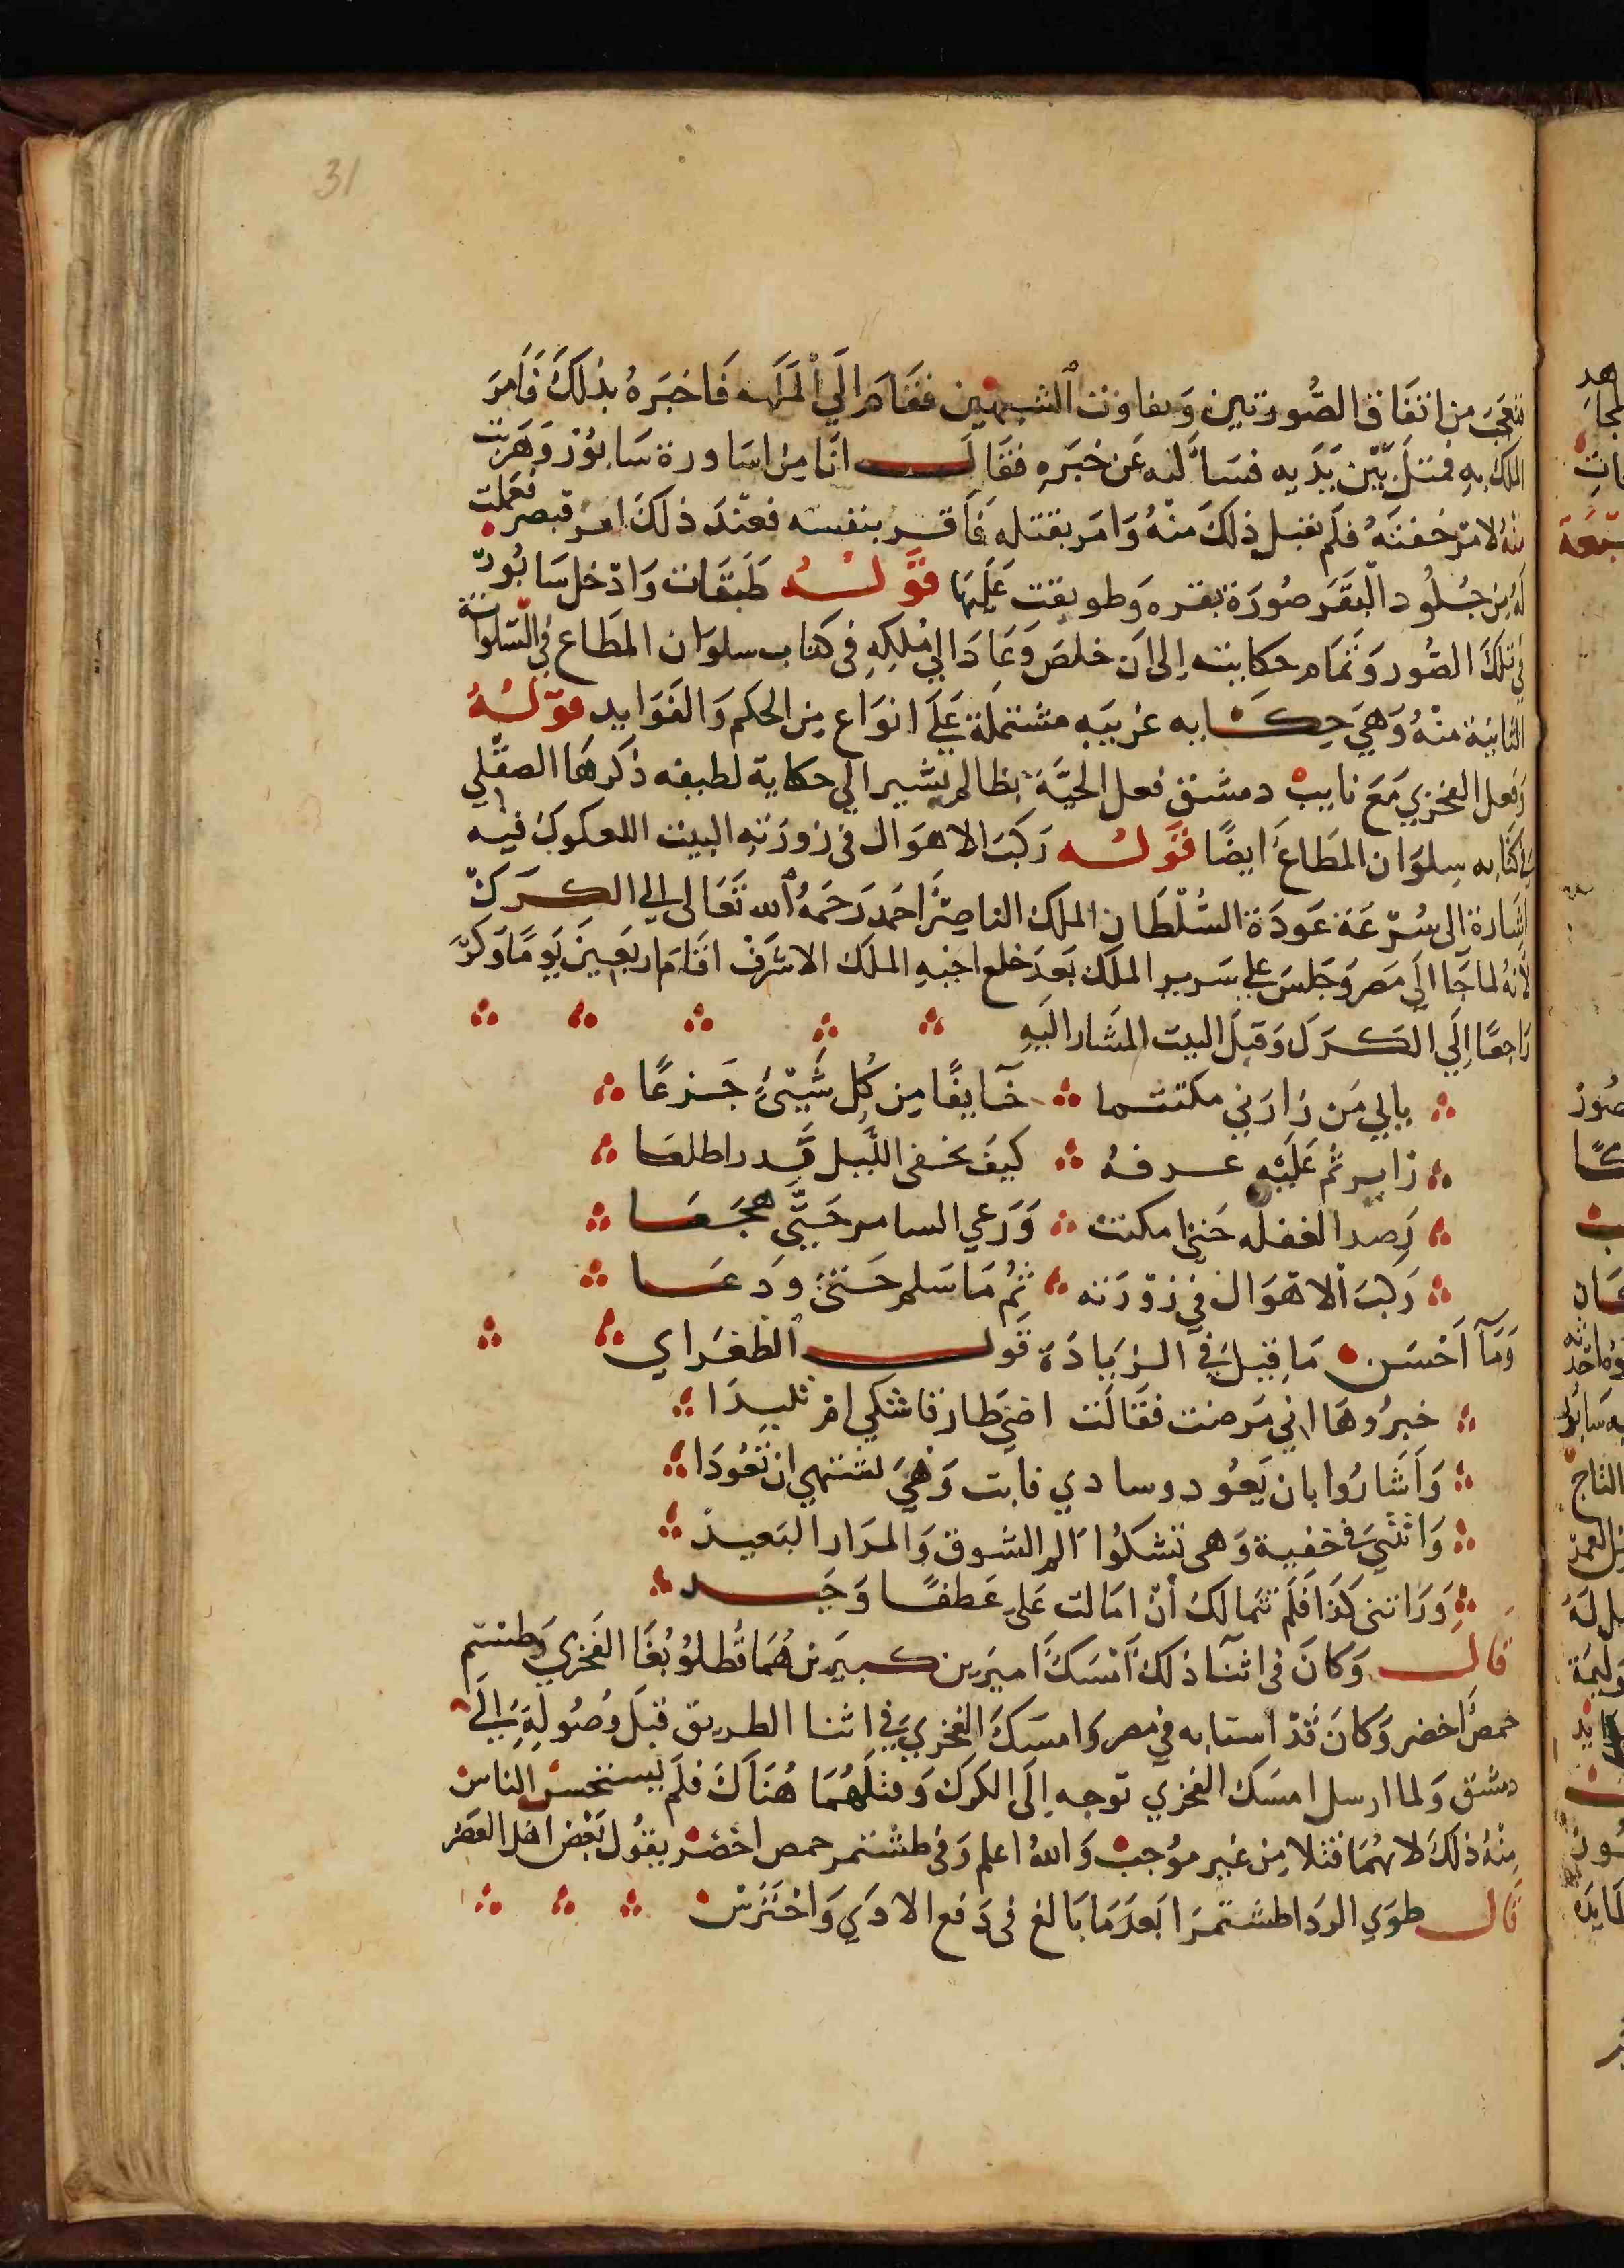 31
تتعجب من اتفاق الصُّورتين وتفاوت الشبهين فقام الي الملك فاخبره بذلك فامر
الملك به فمثل بين يديه فسأله عن خبره فقال انا من اساورة سابور وهربت
منه لامر خفته فلم يقبل ذلك منه وامر بقتله فاقر بنفسه فعند ذلك امر قيصر فعملت
له من جلود البقر صورة بقره وطوبقت عليها قوله طبقات وادخل سابور
في تلك الصور وتمام حكايته إلى ان خلص وعاد الي ملكه في كتاب سلوان المطاع في السلوانة
الثانية منه وهي حكايه غريبه مشتملة علي انواع من الحكم والفوايد قوله
وفعل الفخري مع نايب دمشق فعل الحيَّة بظالم يشير الي حكاية لطيفه ذكرها الصقلي
في كتابه سلوان المطاع ايضًا قوله ركب الاهوال في زورته البيت للعكوك فيه
اشارة الى سُرعة عودة السُّلطان الملك الناصر احمد رحمه الله تعالى الي الكرك
لانه لما جا الي مصر وجلس علي سرير الملك بعد خلع اخيه الملك الاشرف اقام اربعين يومًا وكرَّ
راجعًا إلي الكرك وقبل البيت المشار اليه
بابي من زارني مكتتما خايفًا من كل شيئ جزعًا
زاير نم عليه عرفه كيف يخفى الليل قد راطلعا
رصد الغفله حتى امكنت ورعي السامر حتَّي هجعا
ركب الاهوال في زورته ثم ما سلم حتى ودعا
وما احسن ما قيل في الزيادة قول الطغراي
خبرُوها اني مرضت فقالت اضني طارفا شكي ام تليدا
واشاروا بان يعود وسادي فابت وهي تشتهي ان تعُودا
واتتني في خفية وهي تشكوا الم الشوق والمزار البعيد
وراتني كذا فلم تتمالك أن امالت علي عطفًا وجيد
قال وكان في اثنا ذلك أمسك اميرين كبيرين هُما قُطلوبُغا الفخري وطشتم
حمص اخضر وكان قد استابه في مصر وامسك الفخري في اثنا الطريق قبل وصوله الي
دمشق ولما ارسل امسك الفخري توجه إلى الكرك وقتلهُما هُناك فلم يستحسن الناس
منه ذلك لانهما قتلا من غير موجب والله اعلم وفي طشتمر حمص اخضر يقول بعض اهل العصر
قال طوي الردا طشتمرا بعد ما بالغ في دفع الاذي واحترس